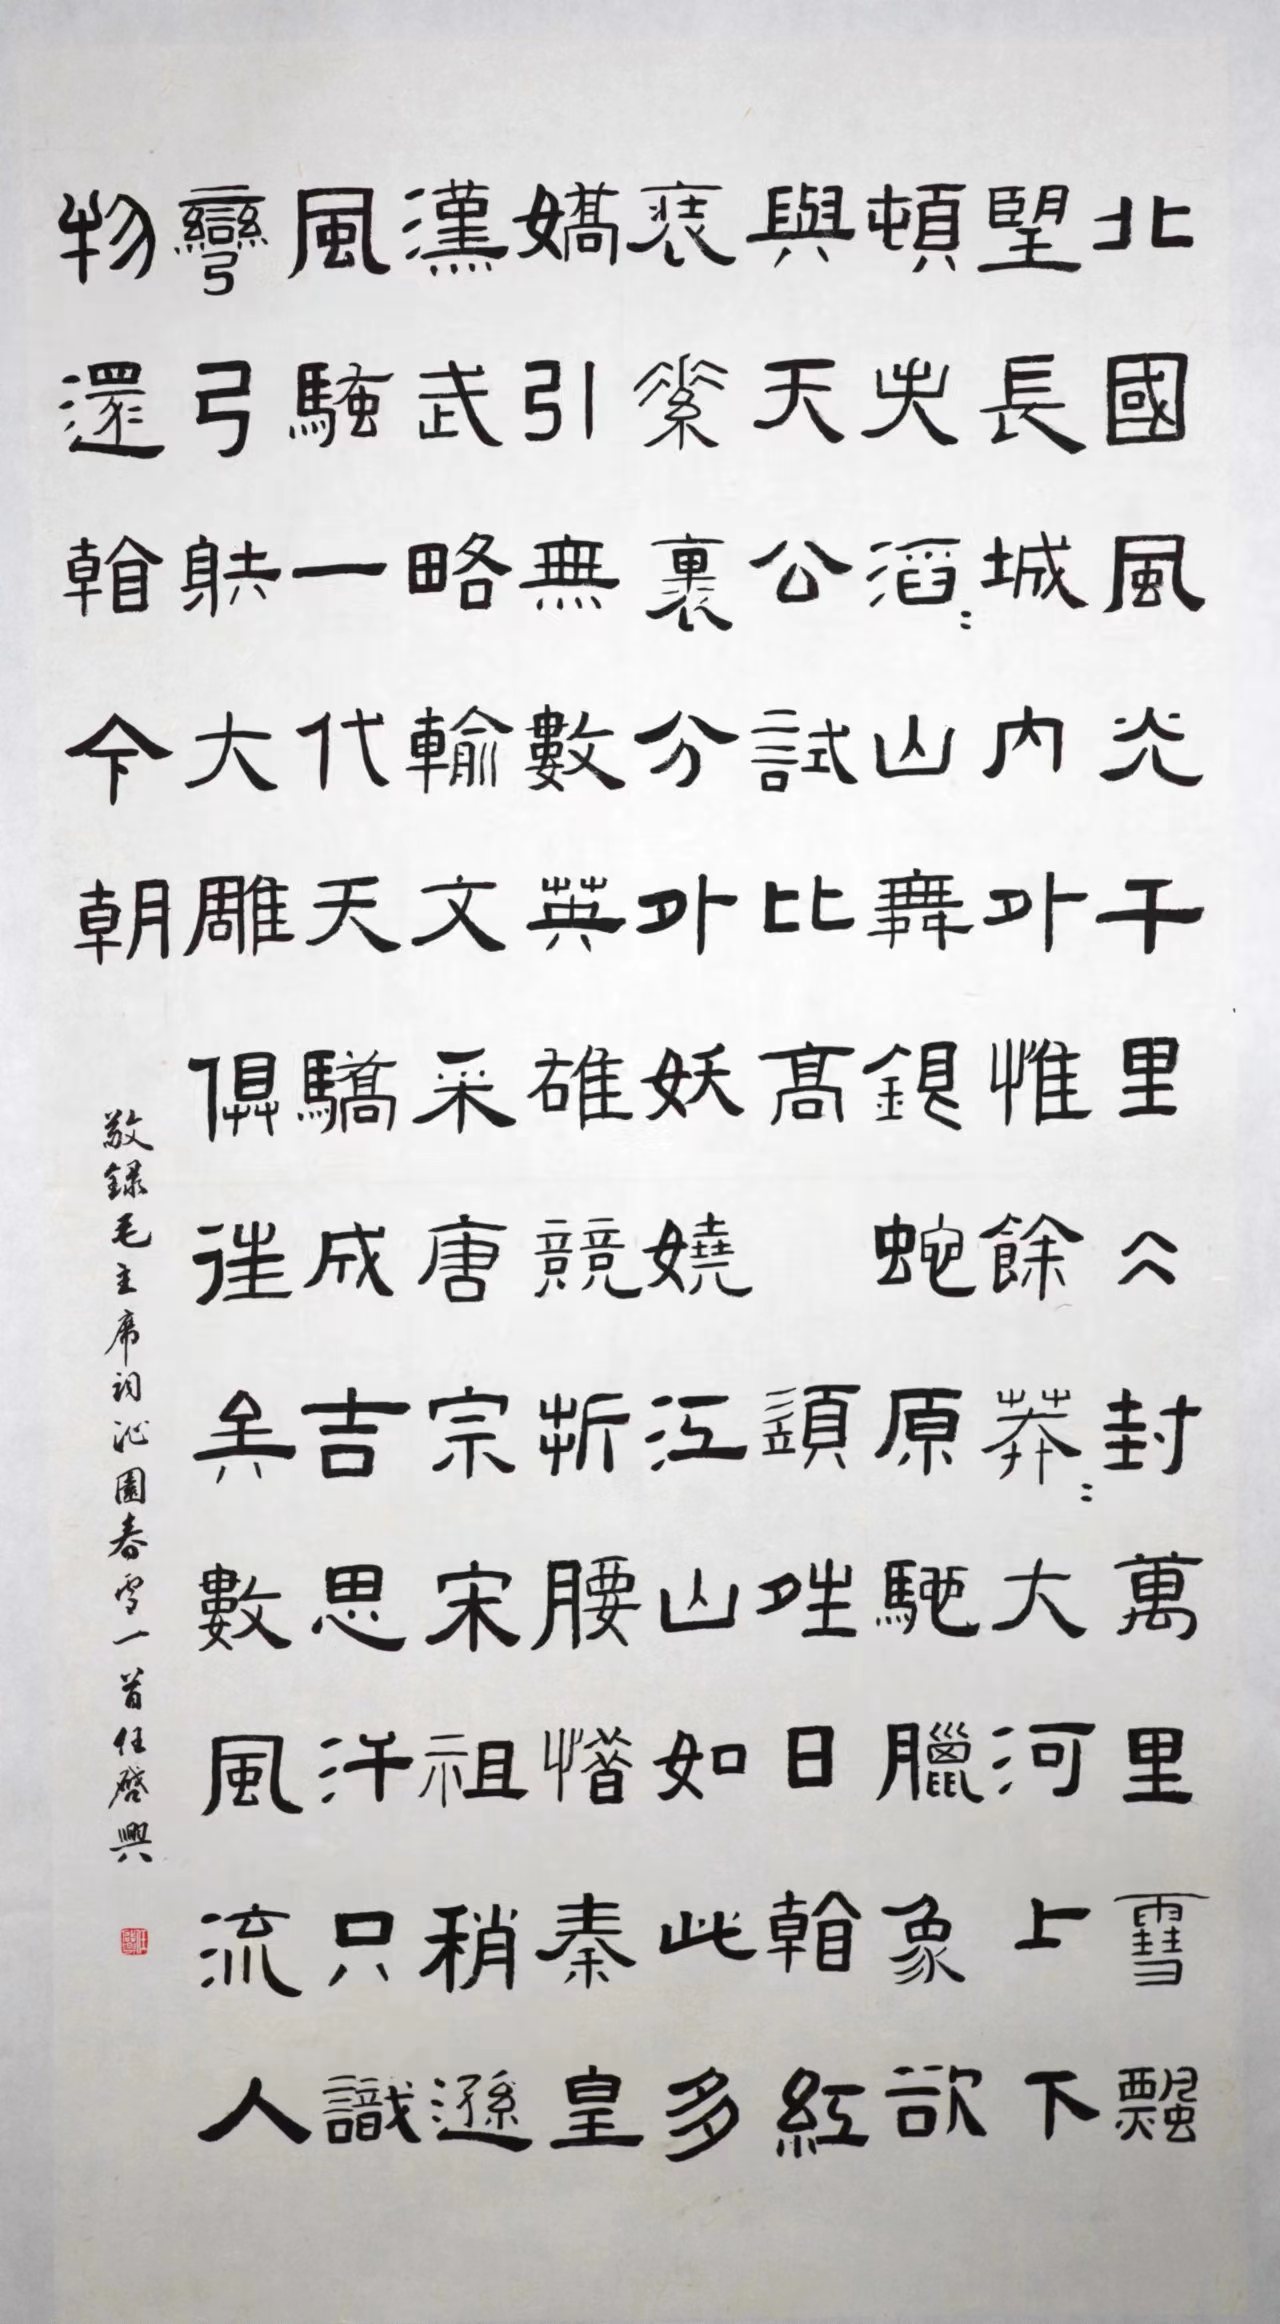 北國風光千里冰封萬里雪飄
望長城內外惟餘莽〻大河上下
頓失滔〻山舞銀蛇原馳臘象欲
與天公試比高 須晴日看紅
裝素裹分外妖嬈江山如此多
嬌引無數英雄競折腰惜秦皇
漢武略輸文采唐宗宋祖稍遜
風騷一代天驕成吉思汗只識
彎弓射大雕俱往矣數風流人
物還看今朝
敬錄毛主席詞沁園春雪一首任啓興